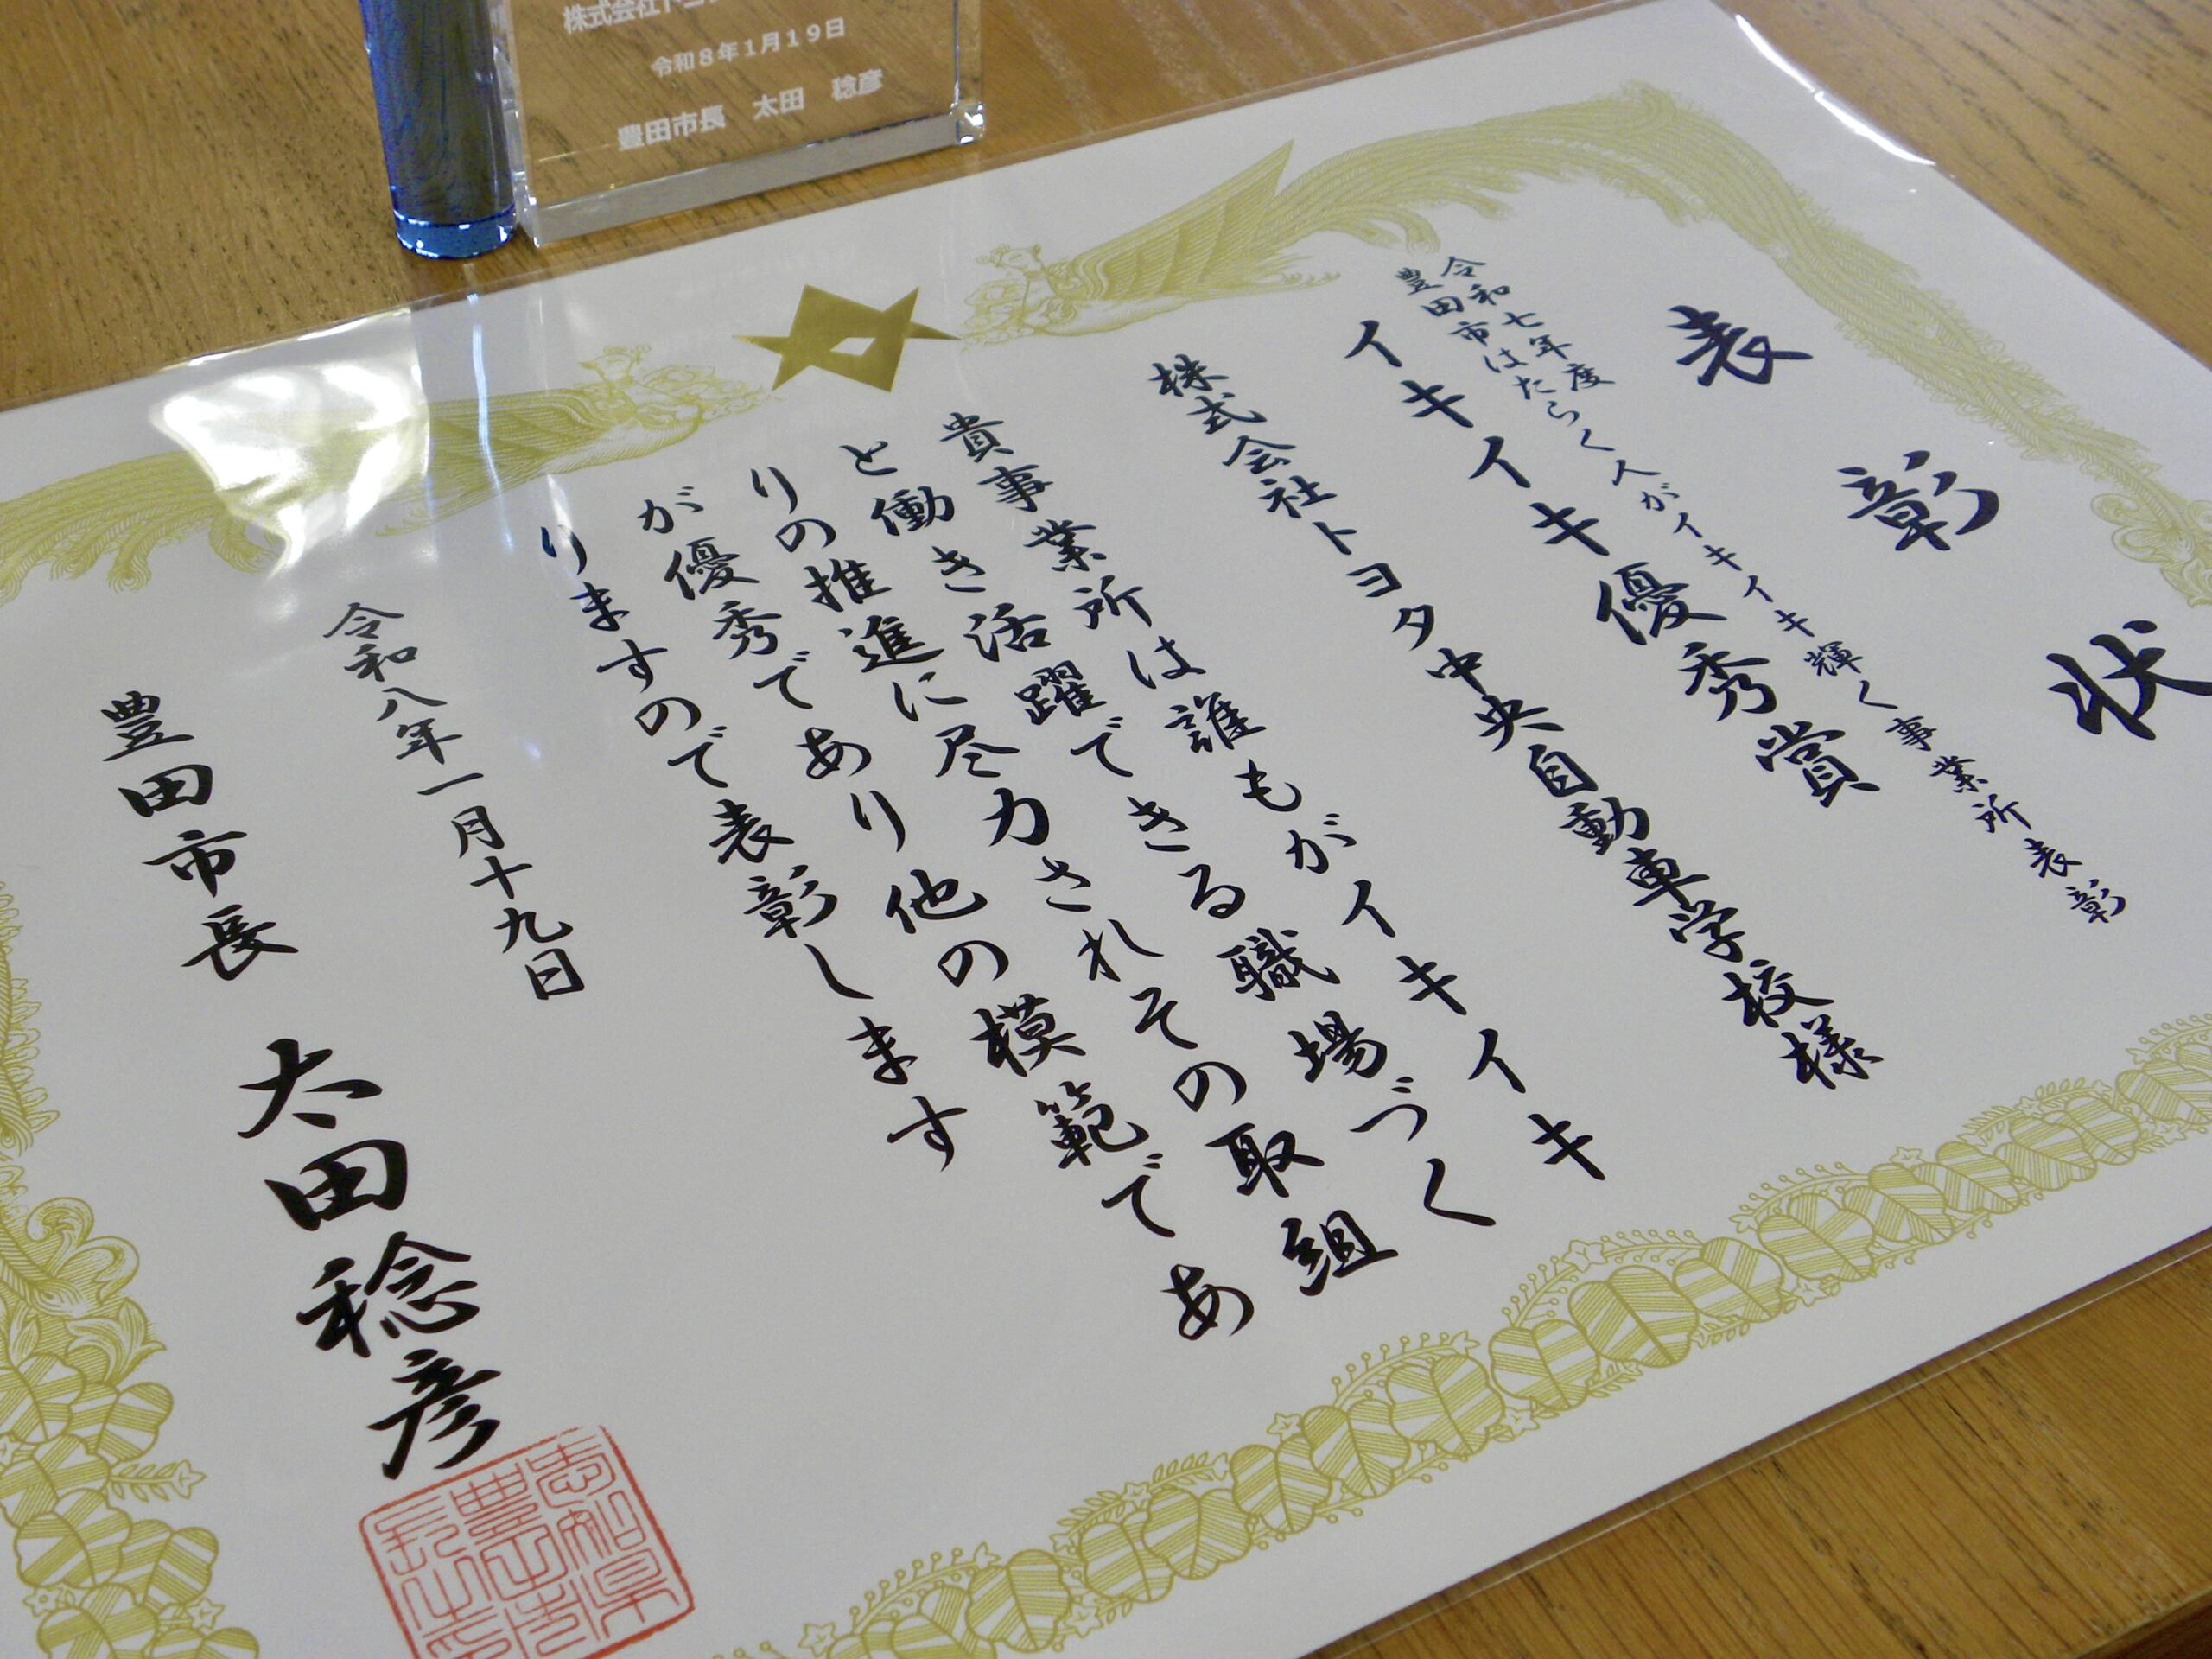 株式会社トヨ
令和8年1月19日
豊田市長 太田 稔彦
表彰状
令和七年度
豊田市はたらく人がイキイキ輝く事業所表彰
イキイキ優秀賞
株式会社トヨタ中央自動車学校様
貴事業所は誰もがイキイキ
と働き活躍できる職場づく
りの推進に尽力されその取組
が優秀であり他の模範であ
りますので表彰します
令和八年一月十九日
豊田市長 太田稔彦
愛知県
豊田市
長之印